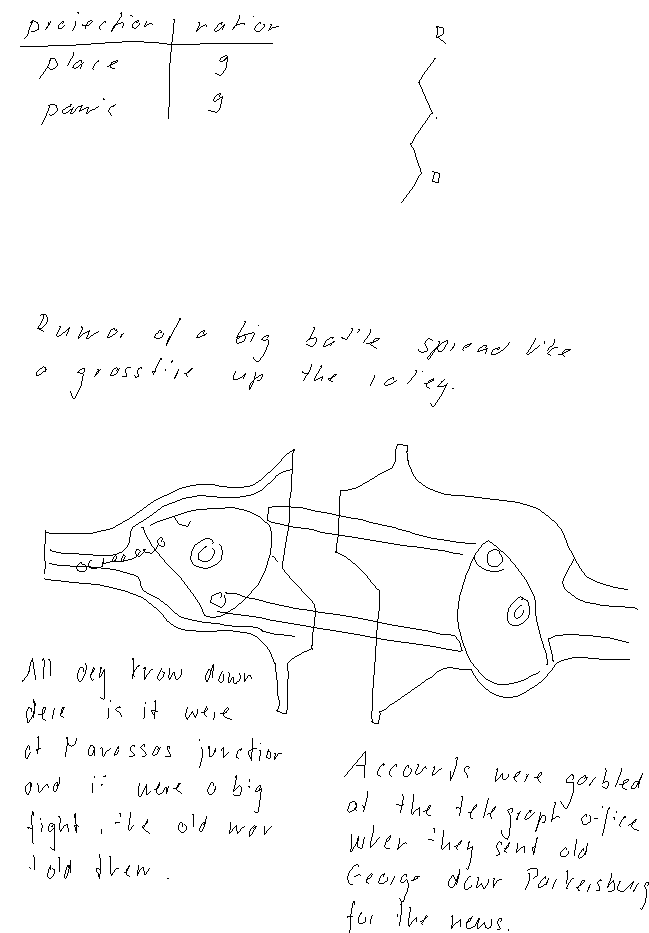 projection ration
place 9
panic 9
R
D
Rumor of a big battle spread like
a grassfire up the valley.
All dey know down
dere is it were
at Manassas junction
and it were a big
fight, the old man
told them.
Accounts were garbled
at the telegraph office
when they sent old
George down Parkersburg
for the news.